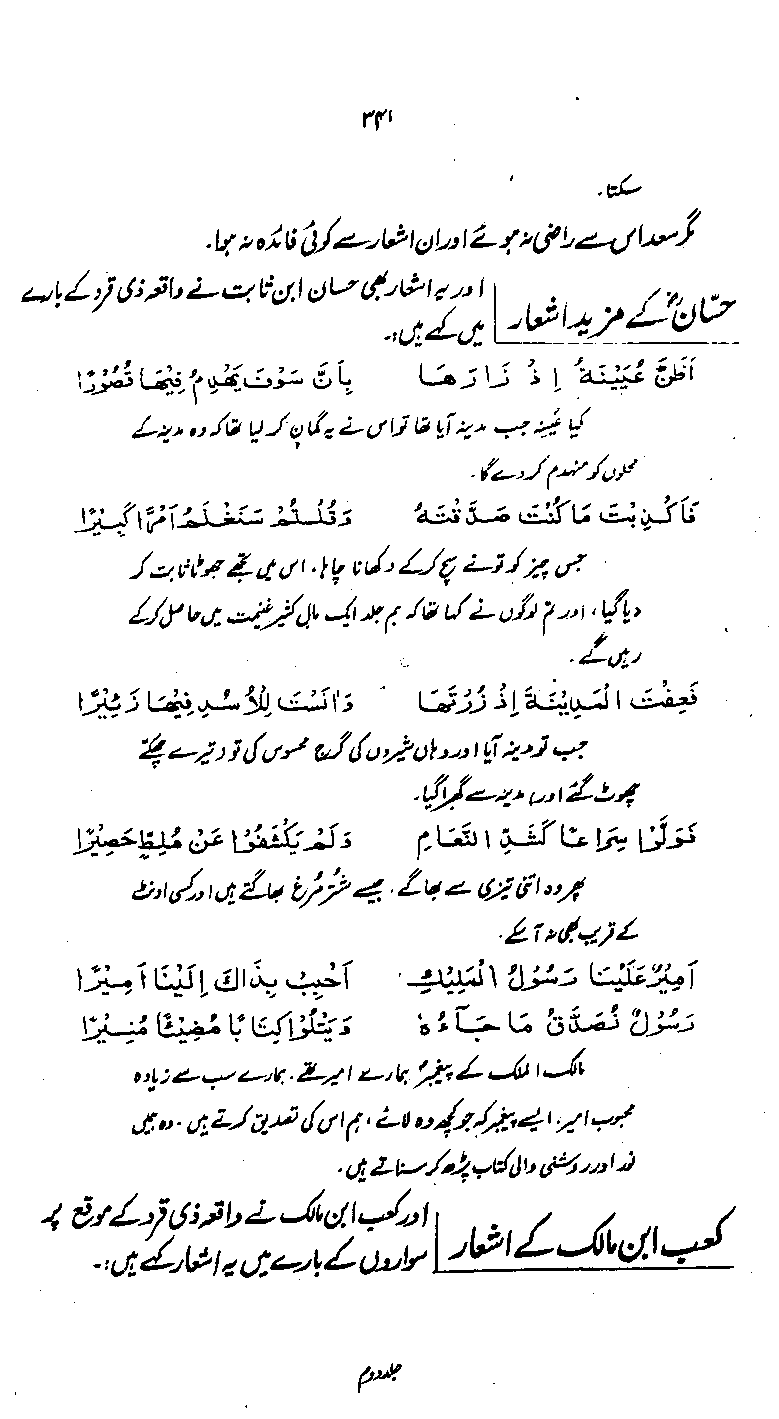 ۳۴۱
سکتا۔
مگر سعد اس سے راضی نہ ہوئے اور ان اشعار سے کوئی فائدہ نہ ہوا۔
حسّانؓ کے مزید اشعار
اور یہ اشعار بھی حسان ابن ثابت نے واقعہ ذی قرد کے بارے
میں کہے ہیں:۔
أَظَنَّ عُيَيْنَةُ إِذْ زَارَهَا بِأَنَّ سَوْفَ يَهْدِمُ فِيْهَا قُصُوْرًا
کیا عُیینہ جب مدینہ آیا تھا تو اس نے یہ گمان کر لیا تھا کہ وہ مدینہ کے
محلوں کو منہدم کر دے گا۔
فَأُكْذِبْتَ مَا كُنْتَ صَدَّقْتَهُ وَقُلْتُمْ سَنَغْنَمُ أَمْرًا كَبِيْرًا
جس چیز کو تو نے سچ کر کے دکھانا چاہا، اس میں تجھے جھوٹا ثابت کر
دیا گیا، اور تم لوگوں نے کہا تھا کہ ہم جلد ایک مالِ کثیر غنیمت میں حاصل کر کے
رہیں گے۔
فَعِفْتَ الْمَدِيْنَةَ إِذْ زُرْتَهَا وَآنَسْتَ لِلْأُسْدِ فِيْهَا زَئِيْرًا
جب تو مدینہ آیا اور وہاں شیروں کی گرج محسوس کی تو تیرے چھکے
چھوٹ گئے اور مدینہ سے گھبرا گیا۔
فَوَلَّوْا سِرَاعًا كَشَدِّ النَّعَامِ وَلَمْ يَكْشِفُوْا عَنْ مُلِطٍّ حَصِيْرًا
پھر وہ اتنی تیزی سے بھاگے، جیسے شتر مرغ بھاگتے ہیں اور کسی اونٹ
کے قریب بھی نہ آ سکے۔
أَمِيْرٌ عَلَيْنَا رَسُوْلُ الْمَلِيْكِ أَحْبِبْ بِذَاكَ إِلَيْنَا أَمِيْرًا
رَسُوْلٌ نُصَدِّقُ مَا جَآءَهُ وَيَتْلُوْا كِتَابًا مُضِيْئًا مُنِيْرًا
مالک الملک کے پیغمبرؐ ہمارے امیر تھے، ہمارے سب سے زیادہ
محبوب امیر، ایسے پیغمبر کہ جو کچھ وہ لائے، ہم اس کی تصدیق کرتے ہیں۔ وہ ہمیں
نور اور روشنی والی کتاب پڑھ کر سناتے ہیں۔
کعب ابن مالک کے اشعار
اور کعب ابن مالک نے واقعہ ذی قرد کے موقع پر
سواروں کے بارے میں یہ اشعار کہے ہیں:۔
جلد دوم